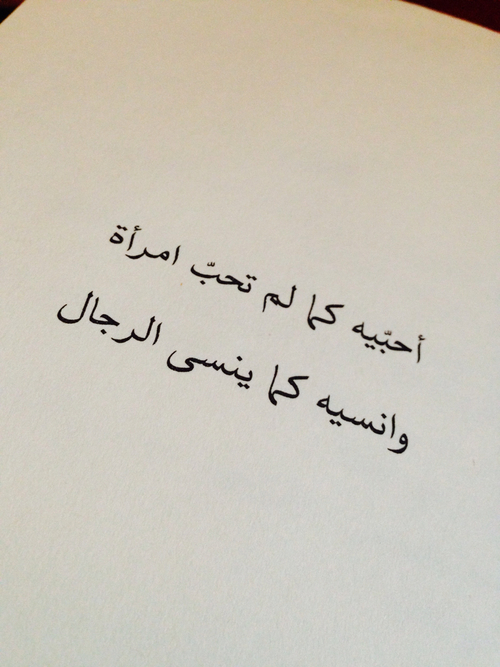 أحبّيه كما لم تحبّ امرأة
وانسيه كما ينسى الرجال